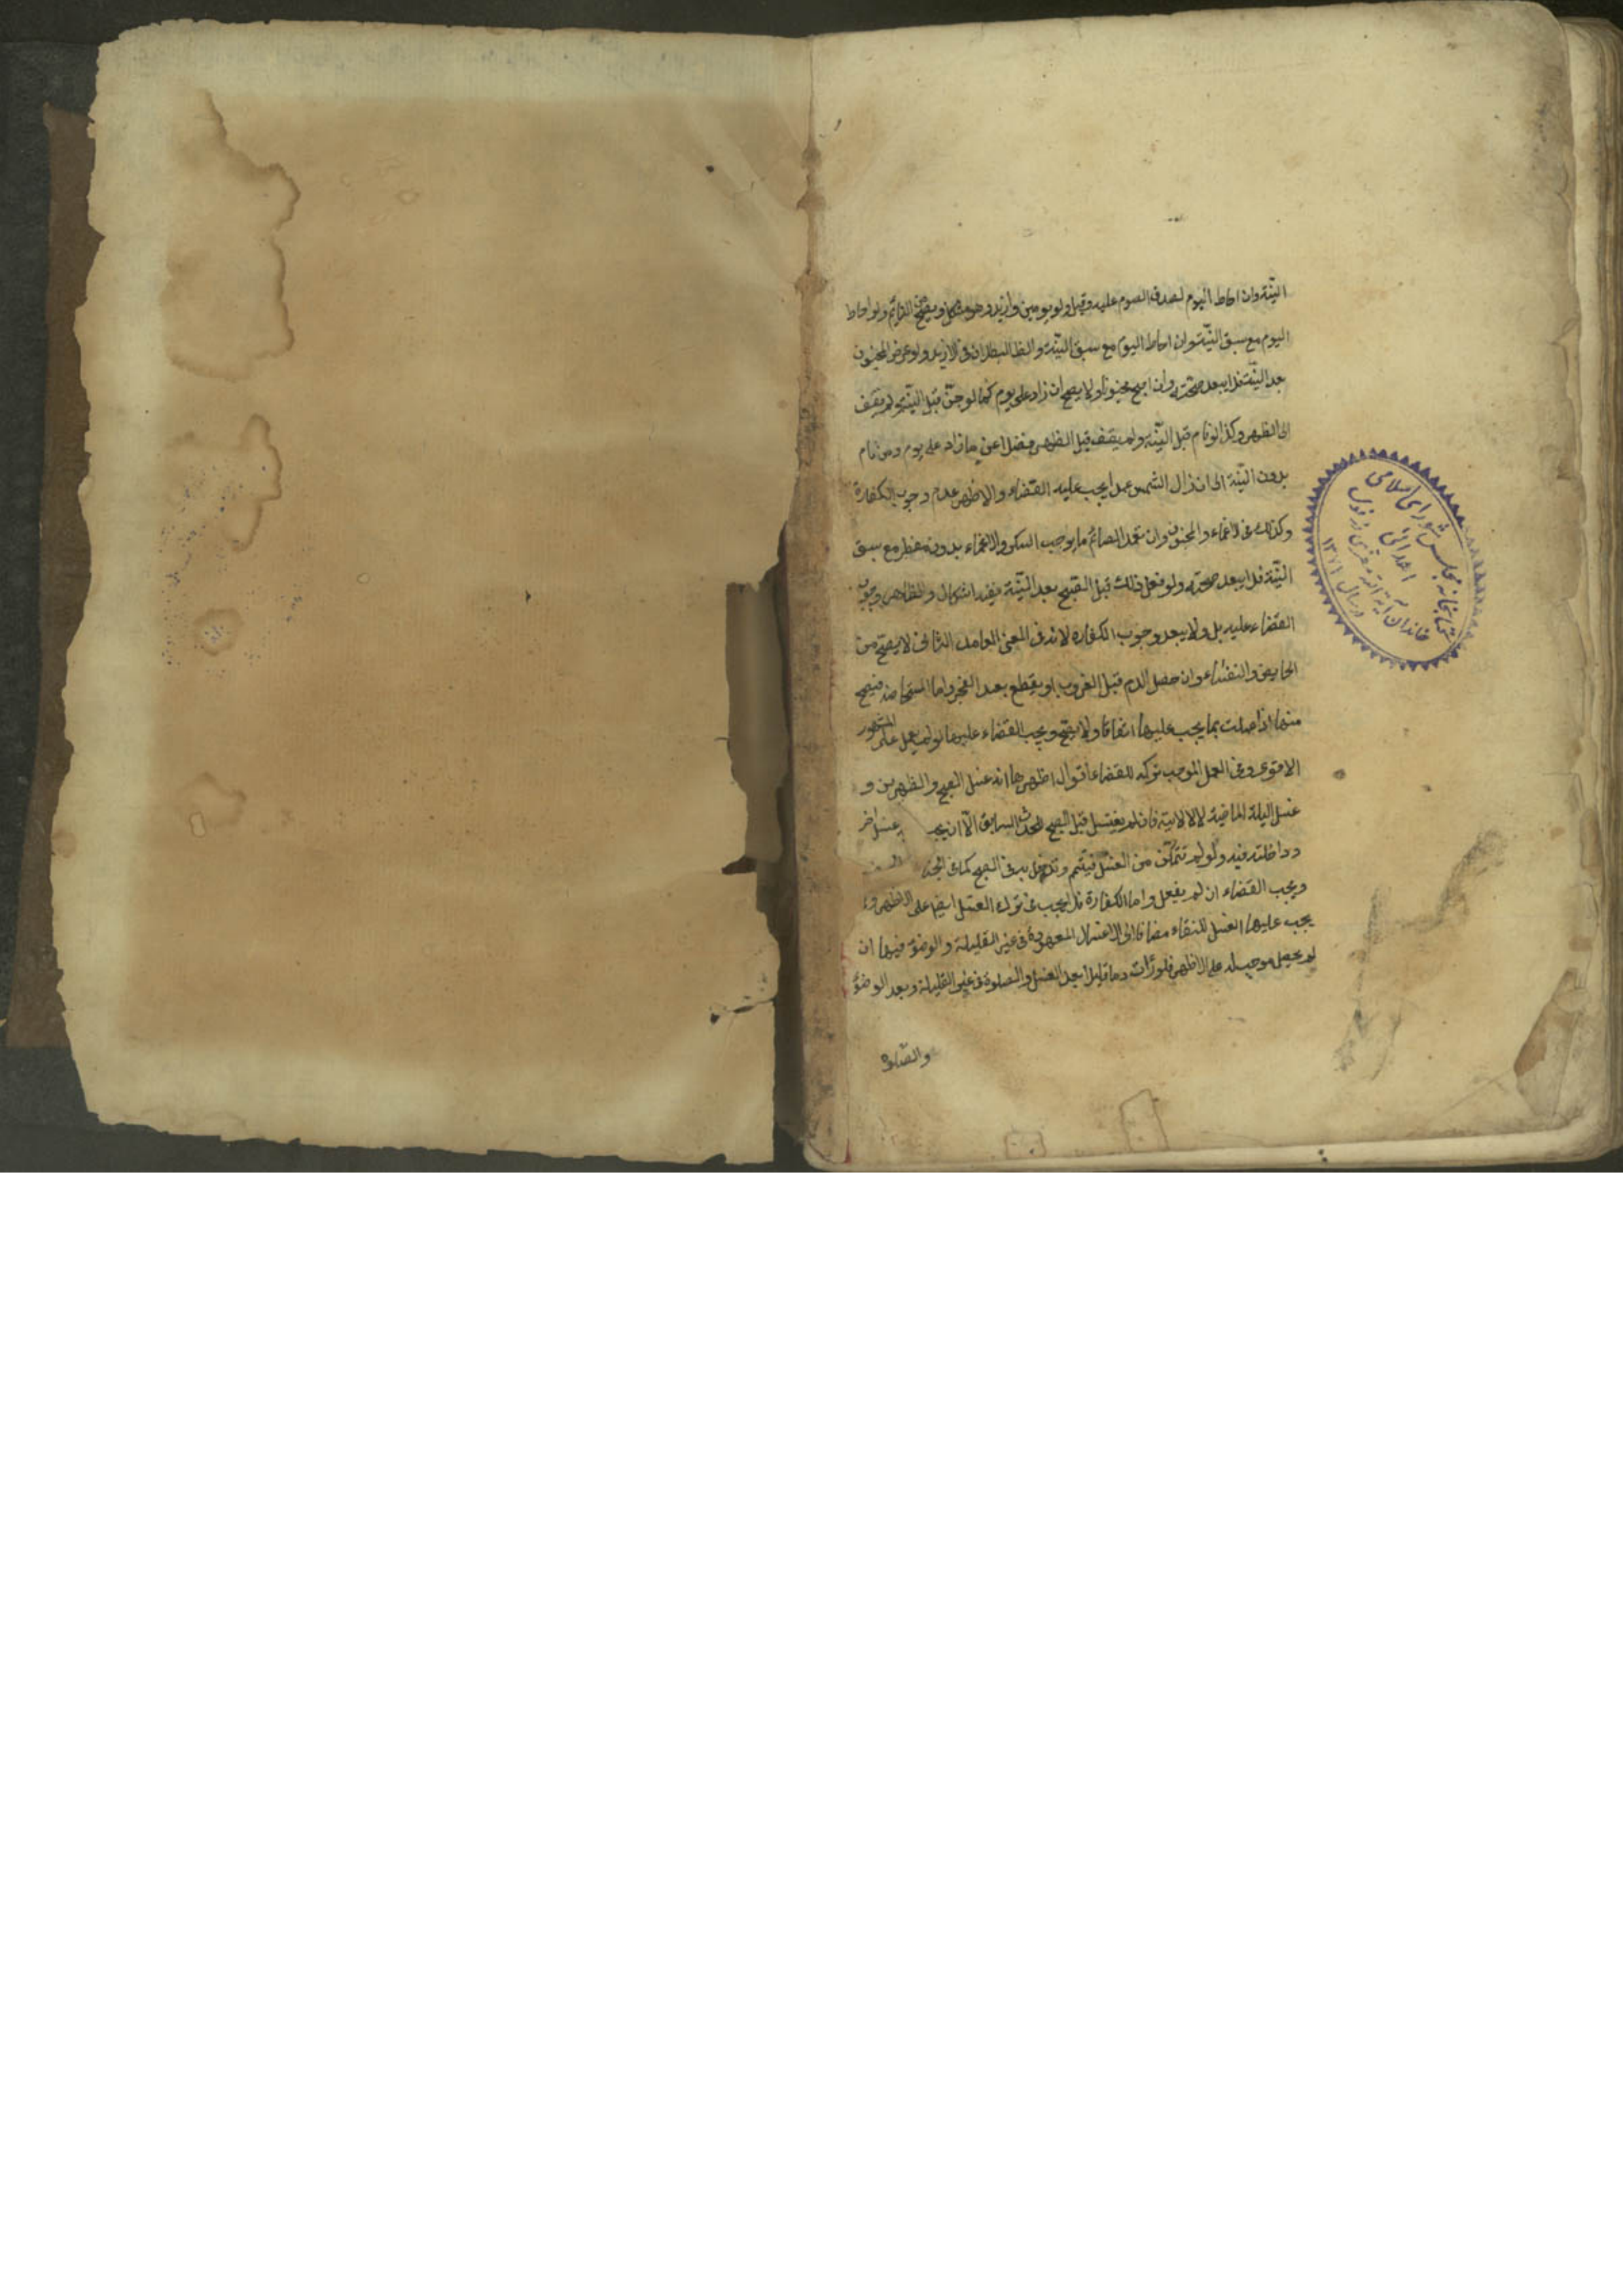 النیّة وان احاط الیوم لصدق الصوم علیه وقیل ولو یومین وازید وهو مشکل ویصح من النایم ولو احاط
الیوم مع سبق النیّة وان احاط الیوم مع سبق النیّة والظ البطلان فی الازید ولو عرض الجنون
بعد النیّة فلا یبعد صحّته وان اصبح مجنونا ولا یصح ان زاد علی یوم کما لو جنّ قبل النیّة ولم یفق
الی الظهر وکذا لو نام قبل النیّة ولم یفق قبل الظهر فضلا عن ما زاد علی یوم ومن نام
بدون النیّة الی ان زال الشمس عمدا یجب علیه القضاء والاظهر عدم وجوب الکفارة
وکذلک فی الاغماء والجنون وان تعمد الصائم ما یوجب السکر والاغماء بدون مفطر مع سبق
النیّة فلا یبعد صحته ولو فعل ذلک قبل الصبح بعد النیّة ففیه اشکال والظاهر وجوب
القضاء علیه بل ولا یبعد وجوب الکفاره لانه فی المعنی العامد الثانی لا یصح من
الحایض والنفساء وان حصل الدم قبل الغروب او یقطع بعد الفجر واما المستحاضه فیصح
منها اذا عملت بما یجب علیها اتفاقا ولا یصح ویجب القضاء علیها لو لم یعمل علی المشهور
الاقوی وفی العمل الموجب ترکه للقضاء اقوال اظهرها انه غسل الصبح والظهرین و
غسل اللیلة الماضیة لا الاتیة فان لم یغتسل قبل الصبح للحدث السابق الّا ان غسل اخر
ودا خلته فیه ولو لم تتمکّن من الغسل فیتیمم وتدخل به فی الصبح کما فی
ویجب القضاء ان لم یفعل واما الکفارة فلا یجب فی ترک الغسل ایضا علی الاظهر و
یجب علیها الغسل للنقاء مضافا الی الاغسال المعهودة فی غیر القلیلة والوضوء فیها ان
لم یحصل موجب له علی الاظهر فلو رأت دما قلیلا بعد الغسل والصلوة فی غیر القلیلة وبعد الوضوء
والصلوة
کتابخانه مجلس شورای اسلامی
اهدائی
خاندان آیة الله
در سال ۱۳۷۱